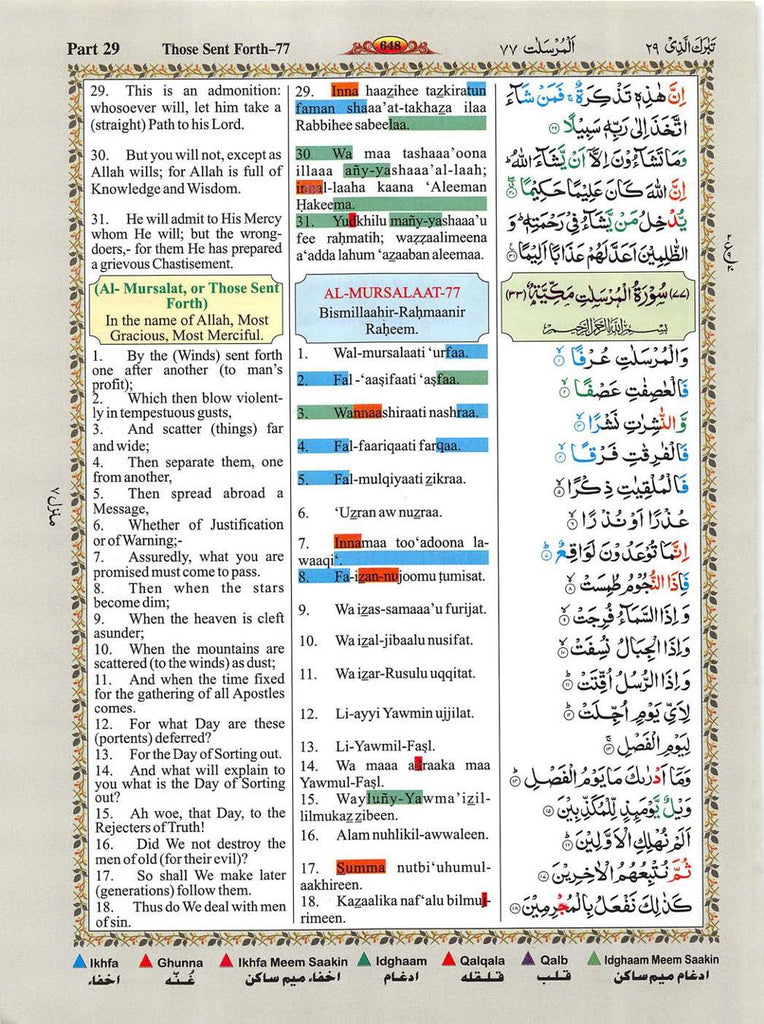 Part 29 Those Sent Forth–77 648 ٧٧ اَلْمُرْسَلٰت تَبٰرَكَ الَّذِيْ ٢٩
29. This is an admonition:
whosoever will, let him take a
(straight) Path to his Lord.
30. But you will not, except as
Allah wills; for Allah is full of
Knowledge and Wisdom.
31. He will admit to His Mercy
whom He will; but the wrong-
doers,- for them He has prepared
a grievous Chastisement.
(Al- Mursalat, or Those Sent
Forth)
In the name of Allah, Most
Gracious, Most Merciful.
1. By the (Winds) sent forth
one after another (to man's
profit);
2. Which then blow violent-
ly in tempestuous gusts,
3. And scatter (things) far
and wide;
4. Then separate them, one
from another,
5. Then spread abroad a
Message,
6. Whether of Justification
or of Warning;-
7. Assuredly, what you are
promised must come to pass.
8. Then when the stars
become dim;
9. When the heaven is cleft
asunder;
10. When the mountains are
scattered (to the winds) as dust;
11. And when the time fixed
for the gathering of all Apostles
comes.
12. For what Day are these
(portents) deferred?
13. For the Day of Sorting out.
14. And what will explain to
you what is the Day of Sorting
out?
15. Ah woe, that Day, to the
Rejecters of Truth!
16. Did We not destroy the
men of old (for their evil)?
17. So shall We make later
(generations) follow them.
18. Thus do We deal with men
of sin.
29. Inna haazihee tazkiratun
faman shaaa'at-takhaza ilaa
Rabbihee sabeelaa.
30. Wa maa tashaaa'oona
illaaa añy-yashaaa'al-laah;
innal-laaha kaana 'Aleeman
Ḥakeema.
31. Yudkhilu mañy-yashaaa'u
fee raḥmatih; wazzaalimeena
a'adda lahum 'azaaban aleemaa.
AL-MURSALAAT-77
Bismillaahir-Raḥmaanir
Raḥeem.
1. Wal-mursalaati 'urfaa.
2. Fal-'aaṣifaati 'aṣfaa.
3. Wannaashiraati nashraa.
4. Fal-faariqaati farqaa.
5. Fal-mulqiyaati zikraa.
6. 'Uzran aw nuzraa.
7. Innamaa too'adoona la-
waaqi'.
8. Fa-izan-nujoomu ṭumisat.
9. Wa izas-samaaa'u furijat.
10. Wa izal-jibaalu nusifat.
11. Wa izar-Rusulu uqqitat.
12. Li-ayyi Yawmin ujjilat.
13. Li-Yawmil-Faṣl.
14. Wa maaa adraaka maa
Yawmul-Faṣl.
15. Wayluñy-Yawma'izil-
lilmukazzibeen.
16. Alam nuhlikil-awwaleen.
17. Summa nutbi'uhumul-
aakhireen.
18. Kazaalika naf'alu bilmuj-
rimeen.
اِنَّ هٰذِهٖ تَذْكِرَةٌ ۚ فَمَنْ شَآءَ
اتَّخَذَ اِلٰى رَبِّهٖ سَبِيْلًا ﴿٢٩﴾
وَمَا تَشَآءُوْنَ اِلَّآ اَنْ يَّشَآءَ اللّٰهُ ؕ
اِنَّ اللّٰهَ كَانَ عَلِيْمًا حَكِيْمًا ﴿٣٠﴾
يُّدْخِلُ مَنْ يَّشَآءُ فِيْ رَحْمَتِهٖ ؕ وَ
الظّٰلِمِيْنَ اَعَدَّ لَهُمْ عَذَابًا اَلِيْمًا ﴿٣١﴾
(٧٧) سُوْرَةُ الْمُرْسَلٰتِ مَكِّيَّةٌ (٣٣)
بِسْمِ اللّٰهِ الرَّحْمٰنِ الرَّحِيْمِ
وَالْمُرْسَلٰتِ عُرْفًا ﴿١﴾
فَالْعٰصِفٰتِ عَصْفًا ﴿٢﴾
وَّالنّٰشِرٰتِ نَشْرًا ﴿٣﴾
فَالْفٰرِقٰتِ فَرْقًا ﴿٤﴾
فَالْمُلْقِيٰتِ ذِكْرًا ﴿٥﴾
عُذْرًا اَوْ نُذْرًا ﴿٦﴾
اِنَّمَا تُوْعَدُوْنَ لَوَاقِعٌ ﴿٧﴾
فَاِذَا النُّجُوْمُ طُمِسَتْ ﴿٨﴾
وَاِذَا السَّمَآءُ فُرِجَتْ ﴿٩﴾
وَاِذَا الْجِبَالُ نُسِفَتْ ﴿١٠﴾
وَاِذَا الرُّسُلُ اُقِّتَتْ ﴿١١﴾
لِاَيِّ يَوْمٍ اُجِّلَتْ ﴿١٢﴾
لِيَوْمِ الْفَصْلِ ﴿١٣﴾
وَمَآ اَدْرٰىكَ مَا يَوْمُ الْفَصْلِ ﴿١٤﴾
وَيْلٌ يَّوْمَئِذٍ لِّلْمُكَذِّبِيْنَ ﴿١٥﴾
اَلَمْ نُهْلِكِ الْاَوَّلِيْنَ ﴿١٦﴾
ثُمَّ نُتْبِعُهُمُ الْاٰخِرِيْنَ ﴿١٧﴾
كَذٰلِكَ نَفْعَلُ بِالْمُجْرِمِيْنَ ﴿١٨﴾
منزل ٧
Ikhfa Ghunna Ikhfa Meem Saakin Idghaam Qalqala Qalb Idghaam Meem Saakin
اخفاء غُنّه اخفاء میم ساکن ادغام قلقله قلب ادغام میم ساکن